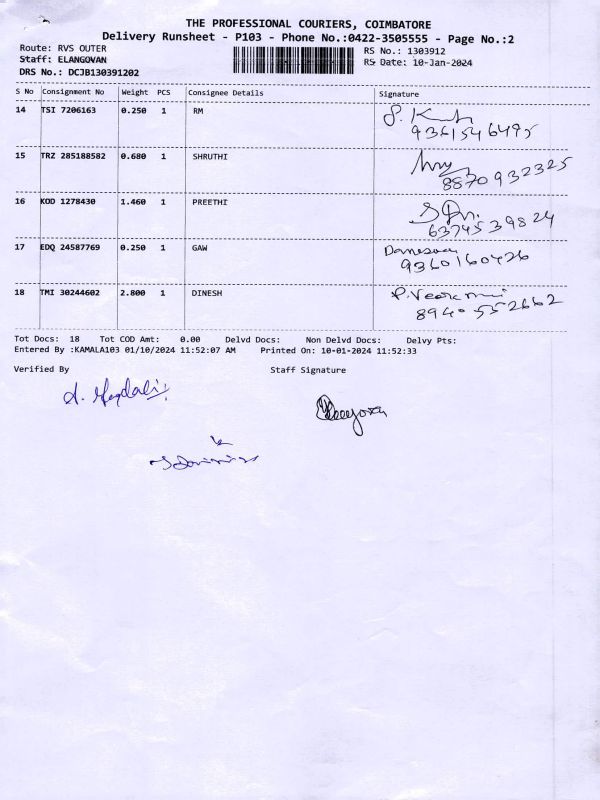 THE PROFESSIONAL COURIERS, COIMBATORE
Delivery Runsheet - P103 - Phone No.:0422-3505555 - Page No.:2
Route: RVS OUTER RS No.: 1303912
Staff: ELANGOVAN RS Date: 10-Jan-2024
DRS No.: DCJB130391202
S No Consignment No Weight PCS Consignee Details Signature
14 TSI 7206163 0.250 1 RM
9361546495
15 TRZ 285188582 0.680 1 SHRUTHI
8870932325
16 KOD 1278430 1.460 1 PREETHI
6374539824
17 EDQ 24587769 0.250 1 GAW
9360160426
18 TMI 30244602 2.800 1 DINESH
8940552662
Tot Docs: 18 Tot COD Amt: 0.00 Delvd Docs: Non Delvd Docs: Delvy Pts:
Entered By :KAMALA103 01/10/2024 11:52:07 AM Printed On: 10-01-2024 11:52:33
Verified By Staff Signature